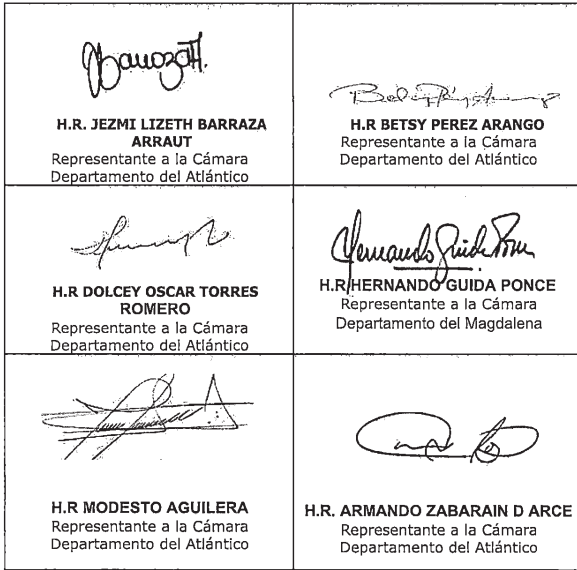 H.R. JEZMI LIZETH BARRAZA
ARRAUT
Representante a la Cámara
Departamento del Atlántico
H.R BETSY PEREZ ARANGO
Representante a la Cámara
Departamento del Atlántico
H.R DOLCEY OSCAR TORRES
ROMERO
Representante a la Cámara
Departamento del Atlántico
Hernando Guida Ponce
H.R HERNANDO GUIDA PONCE
Representante a la Cámara
Departamento del Magdalena
H.R MODESTO AGUILERA
Representante a la Cámara
Departamento del Atlántico
H.R. ARMANDO ZABARAIN D ARCE
Representante a la Cámara
Departamento del Atlántico